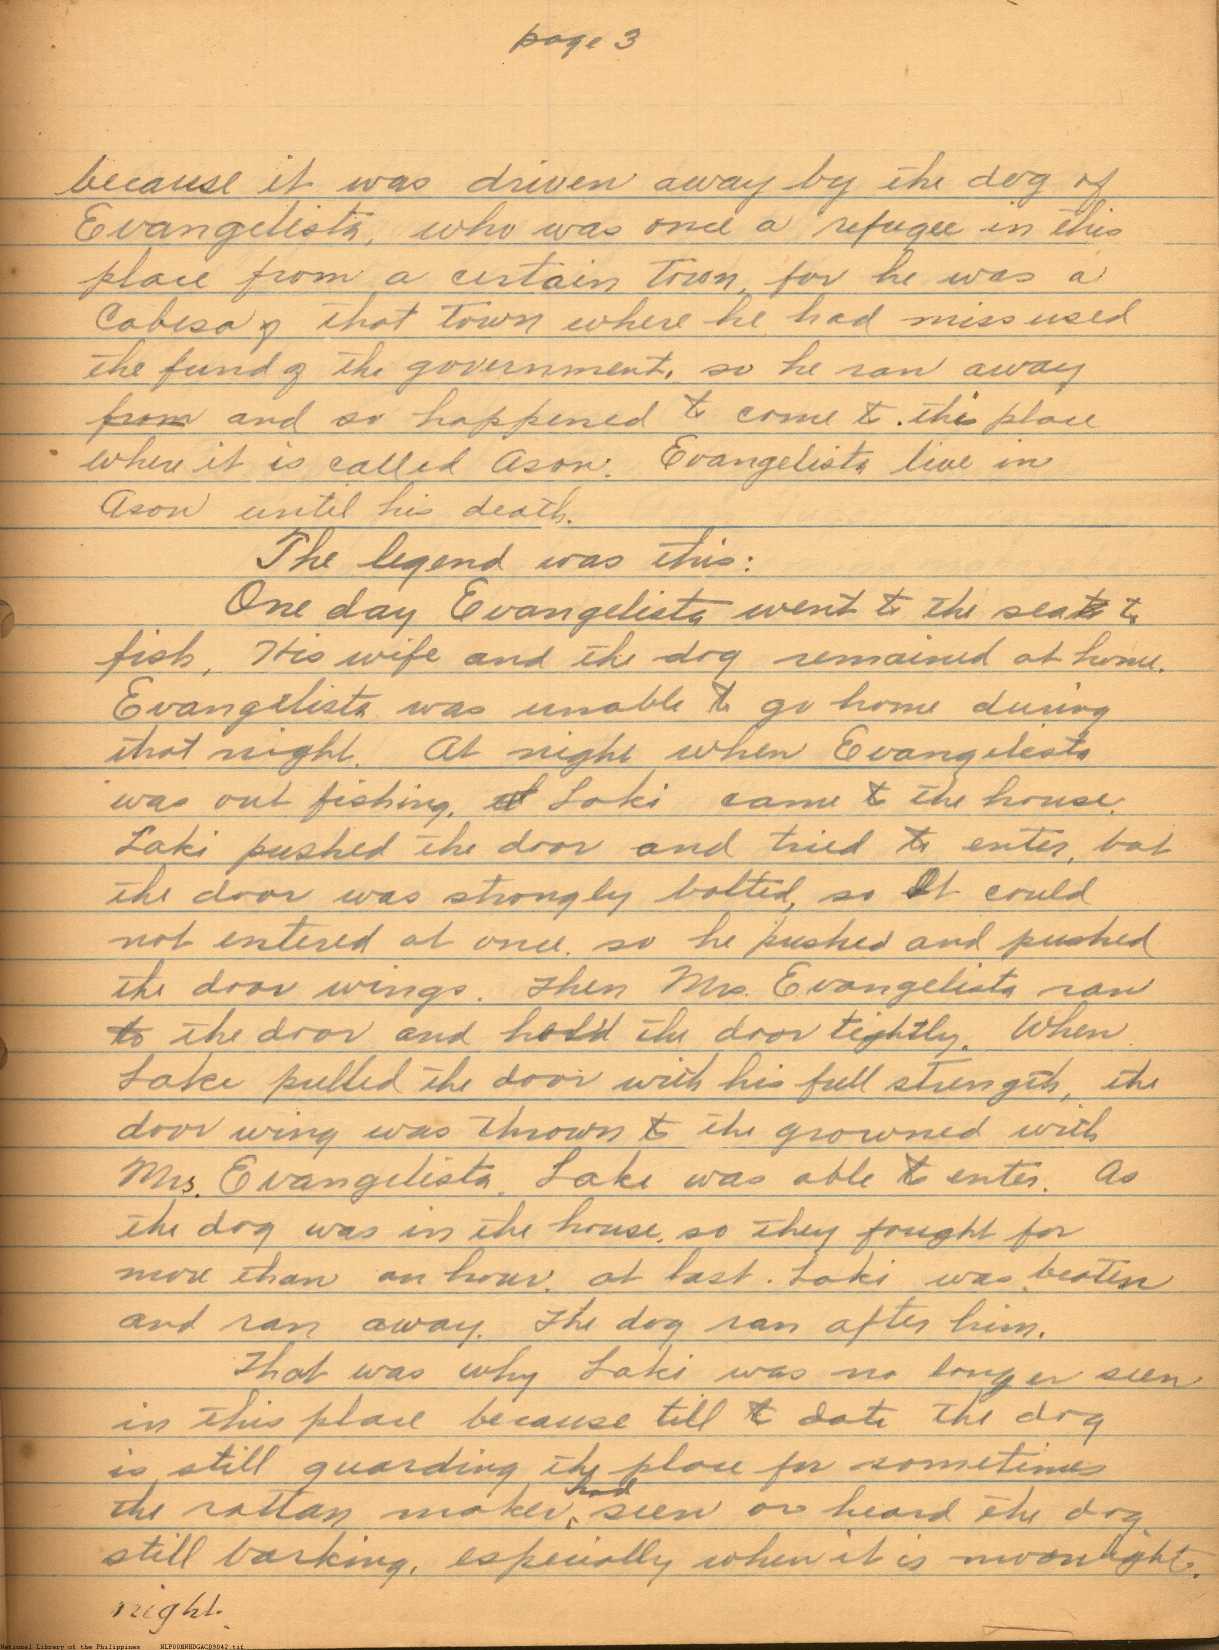 page 3
because it was driven away by the dog of
Evangelista, who was once a refugee in this
place from a certain town, for he was a
Cabesa of that town where he had missused
the fund of the government. so he ran away
from and so happened to come to this place
where it is called Ason. Evangelista live in
Ason until his death.
The legend was this:
One day Evangelista went to the sea to
fish, His wife and the dog remained at home.
Evangelista was unable to go home during
that night. At night when Evangelista
was out fishing, Laki came to the house.
Laki pushed the door and tried to enter, but
the door was strongly bolted, so It could
not entered at once. so he pushed and pushed
the door wings. Then Mrs. Evangelista ran
to the door and hold the door tightly. When
Lake pulled the door with his full strength, the
door wing was thrown to the growned with
Mrs. Evangelista. Lake was able to enter. As
the dog was in the house, so they fought for
more than an hour. at last. Laki was beaten
and ran away. The dog ran after him.
That was why Laki was no longer seen
in this place because till to date the dog
is still guarding the place for sometimes
the rattan maker had seen or heard the dog
still barking, especially when it is moonlight.
night.
National Library of the Philippines NLP00MNHDGACD9042.tif